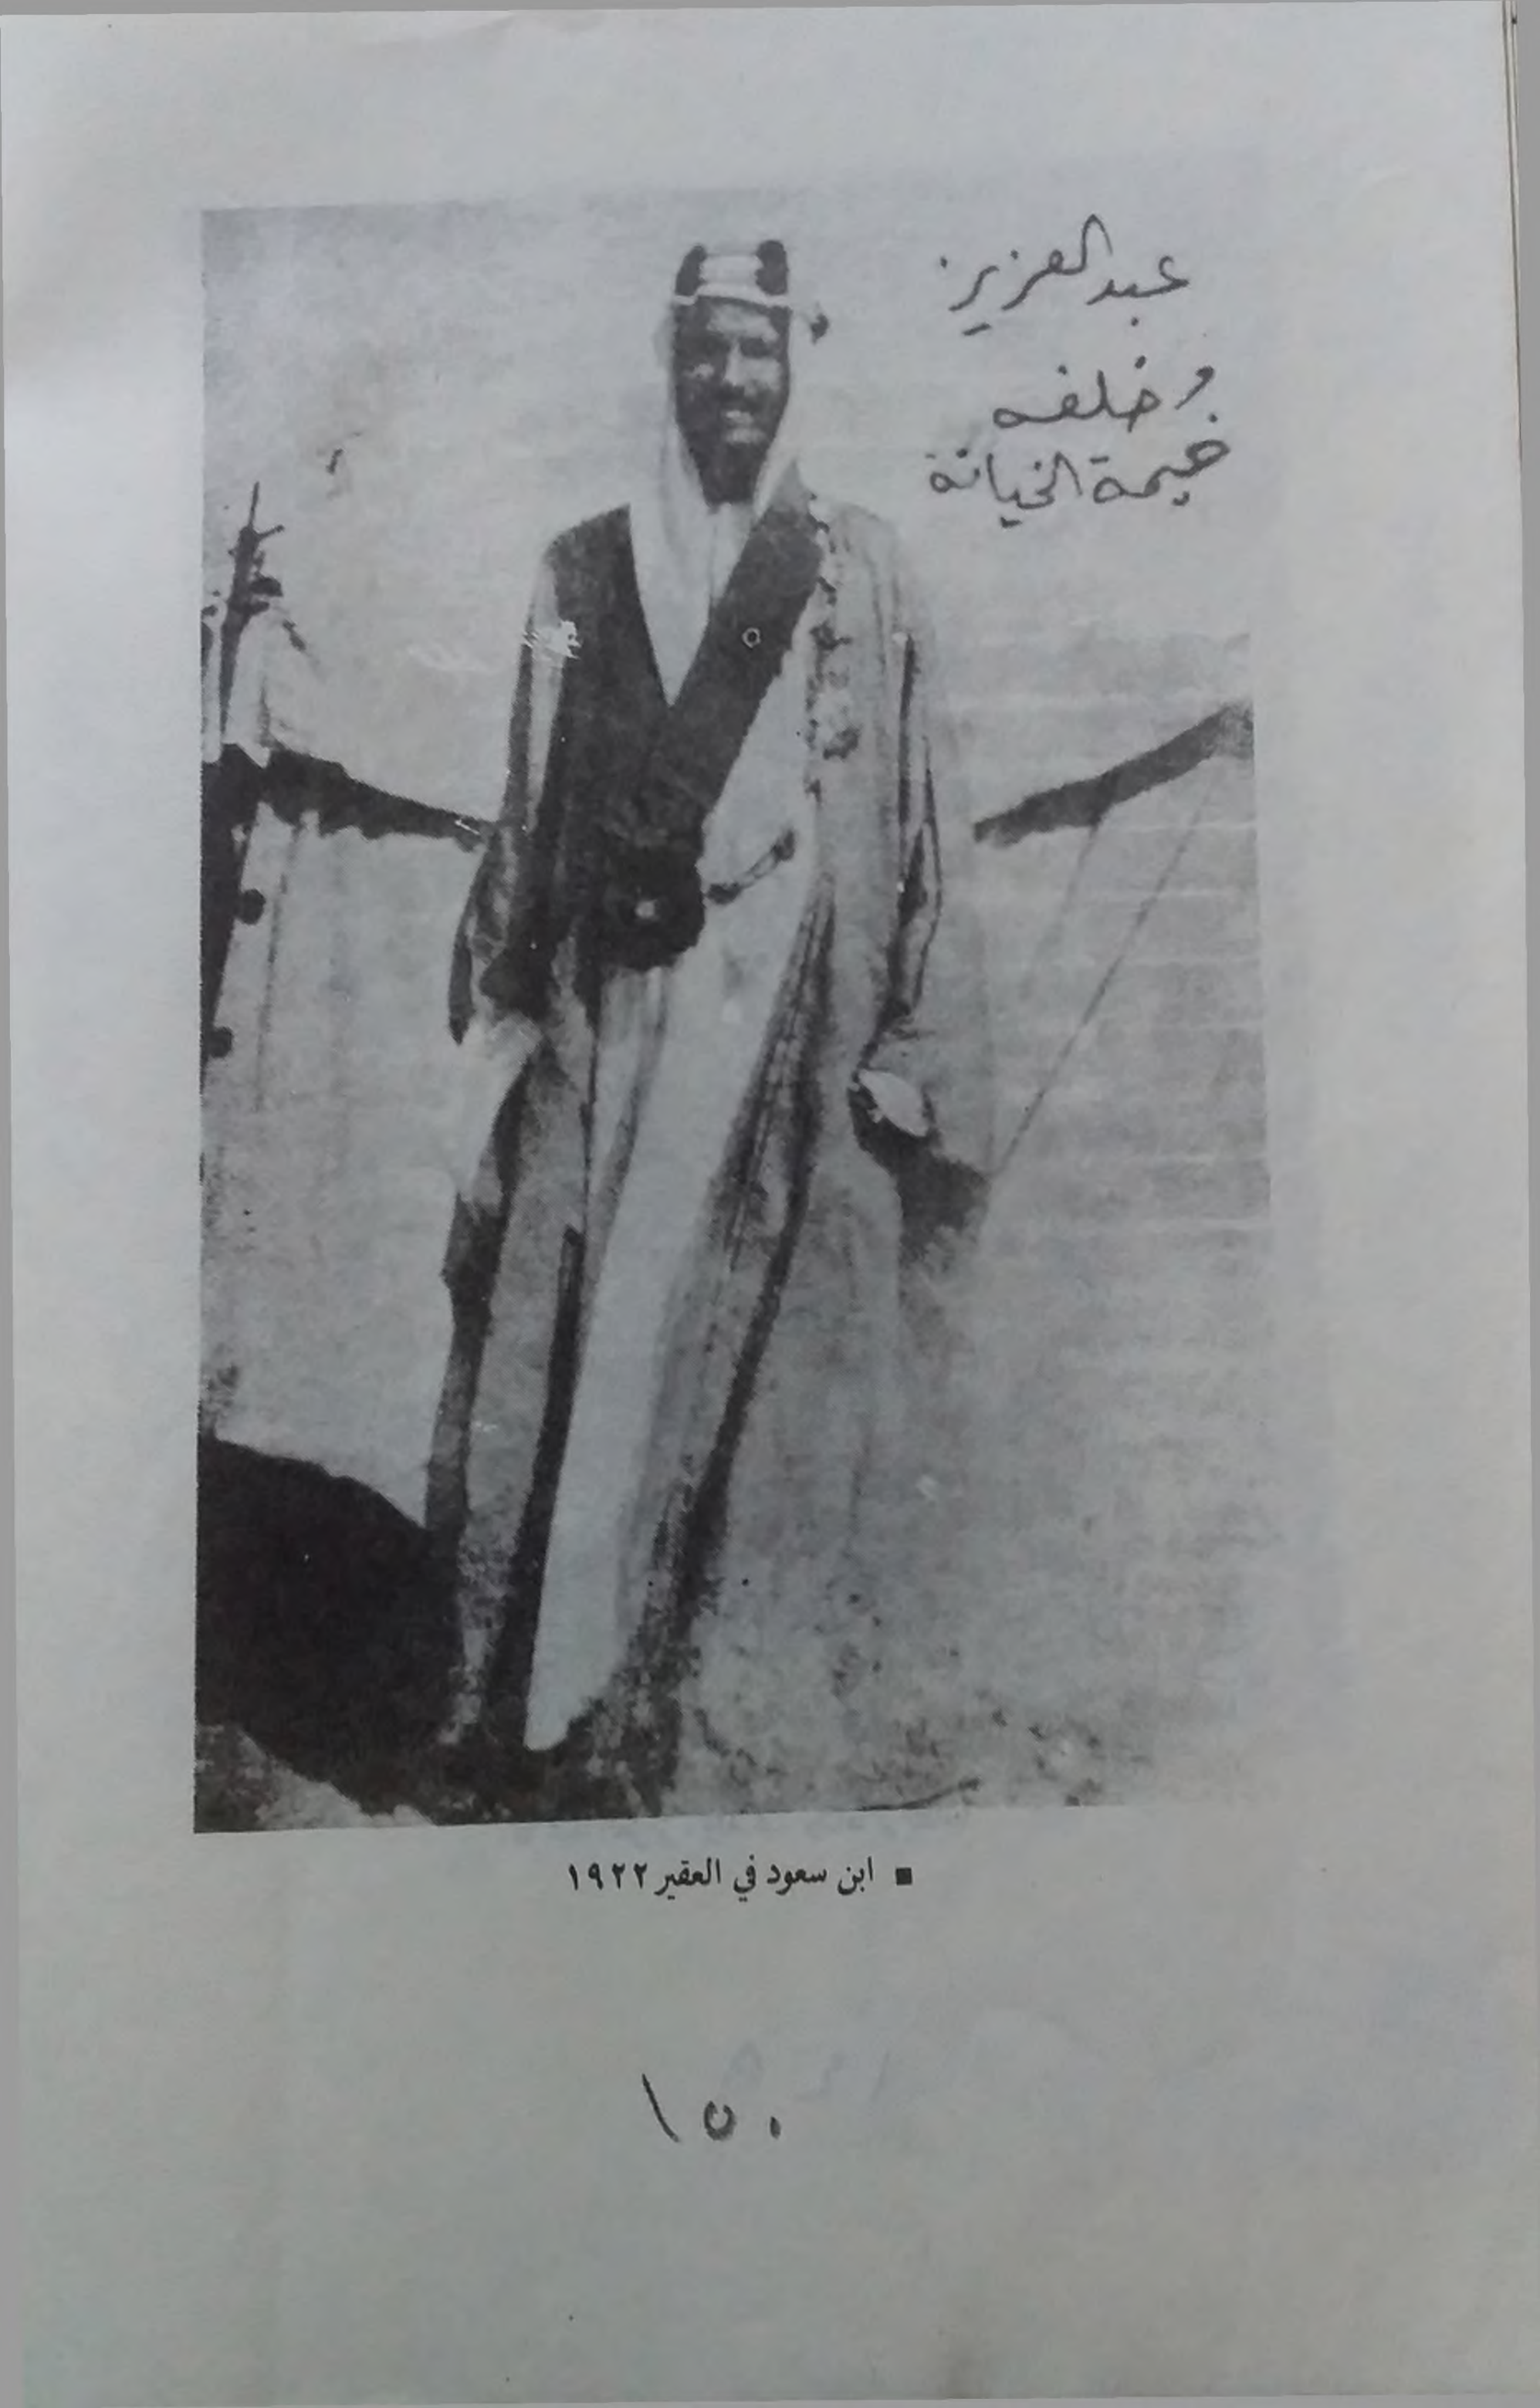 عبد العزيز
وخلفه
خيمة الخيانة
■ ابن سعود في العقير ١٩٢٢
١٥٠